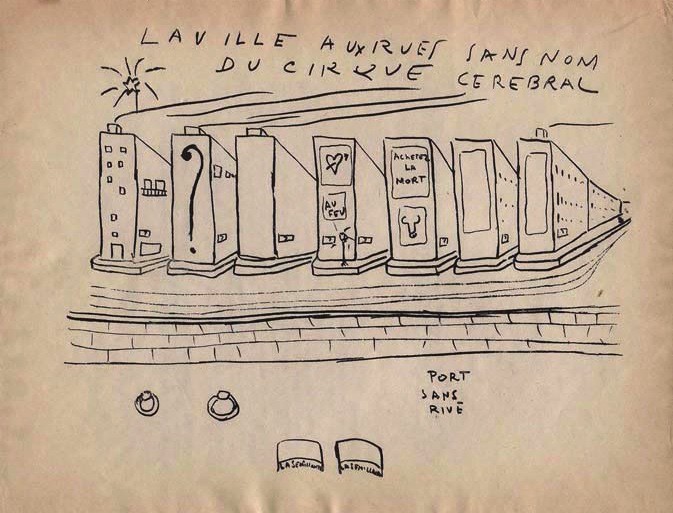 LA VILLE AUX RUES SANS NOM
DU CIRQUE CEREBRAL
?
ACHETEZ
LA
MORT
AU
FEU
PORT
SANS
RIVE